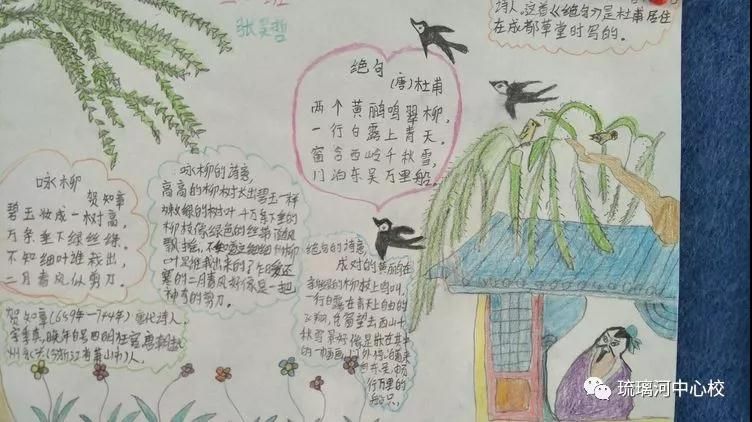 班
张昊哲
诗人,这首《绝句》是杜甫居住
在成都草堂时写的。
绝句
(唐)杜甫
两个黄鹂鸣翠柳,
一行白鹭上青天。
窗含西岭千秋雪,
门泊东吴万里船。
咏柳
贺知章
碧玉妆成一树高,
万条垂下绿丝绦。
不知细叶谁裁出,
二月春风似剪刀。
咏柳的诗意,
高高的柳树长出碧玉一样
嫩绿的树叶 千万条下垂的
柳枝像绿色的丝带随风
飘摇,不知道这细细的柳
叶是谁裁出来的
寒的二月春风好像是一把
神奇的剪刀。
绝句的诗意,
成对的黄鹂在
柳枝上鸣叫,
一行白鹭在青天上自由的
飞翔,
贺知章(659年一744年)唐代诗人,
字季真,晚年自号四明狂客,唐朝越
州永兴(今浙江省萧山市)人。
行万里的
船只,
琉璃河中心校